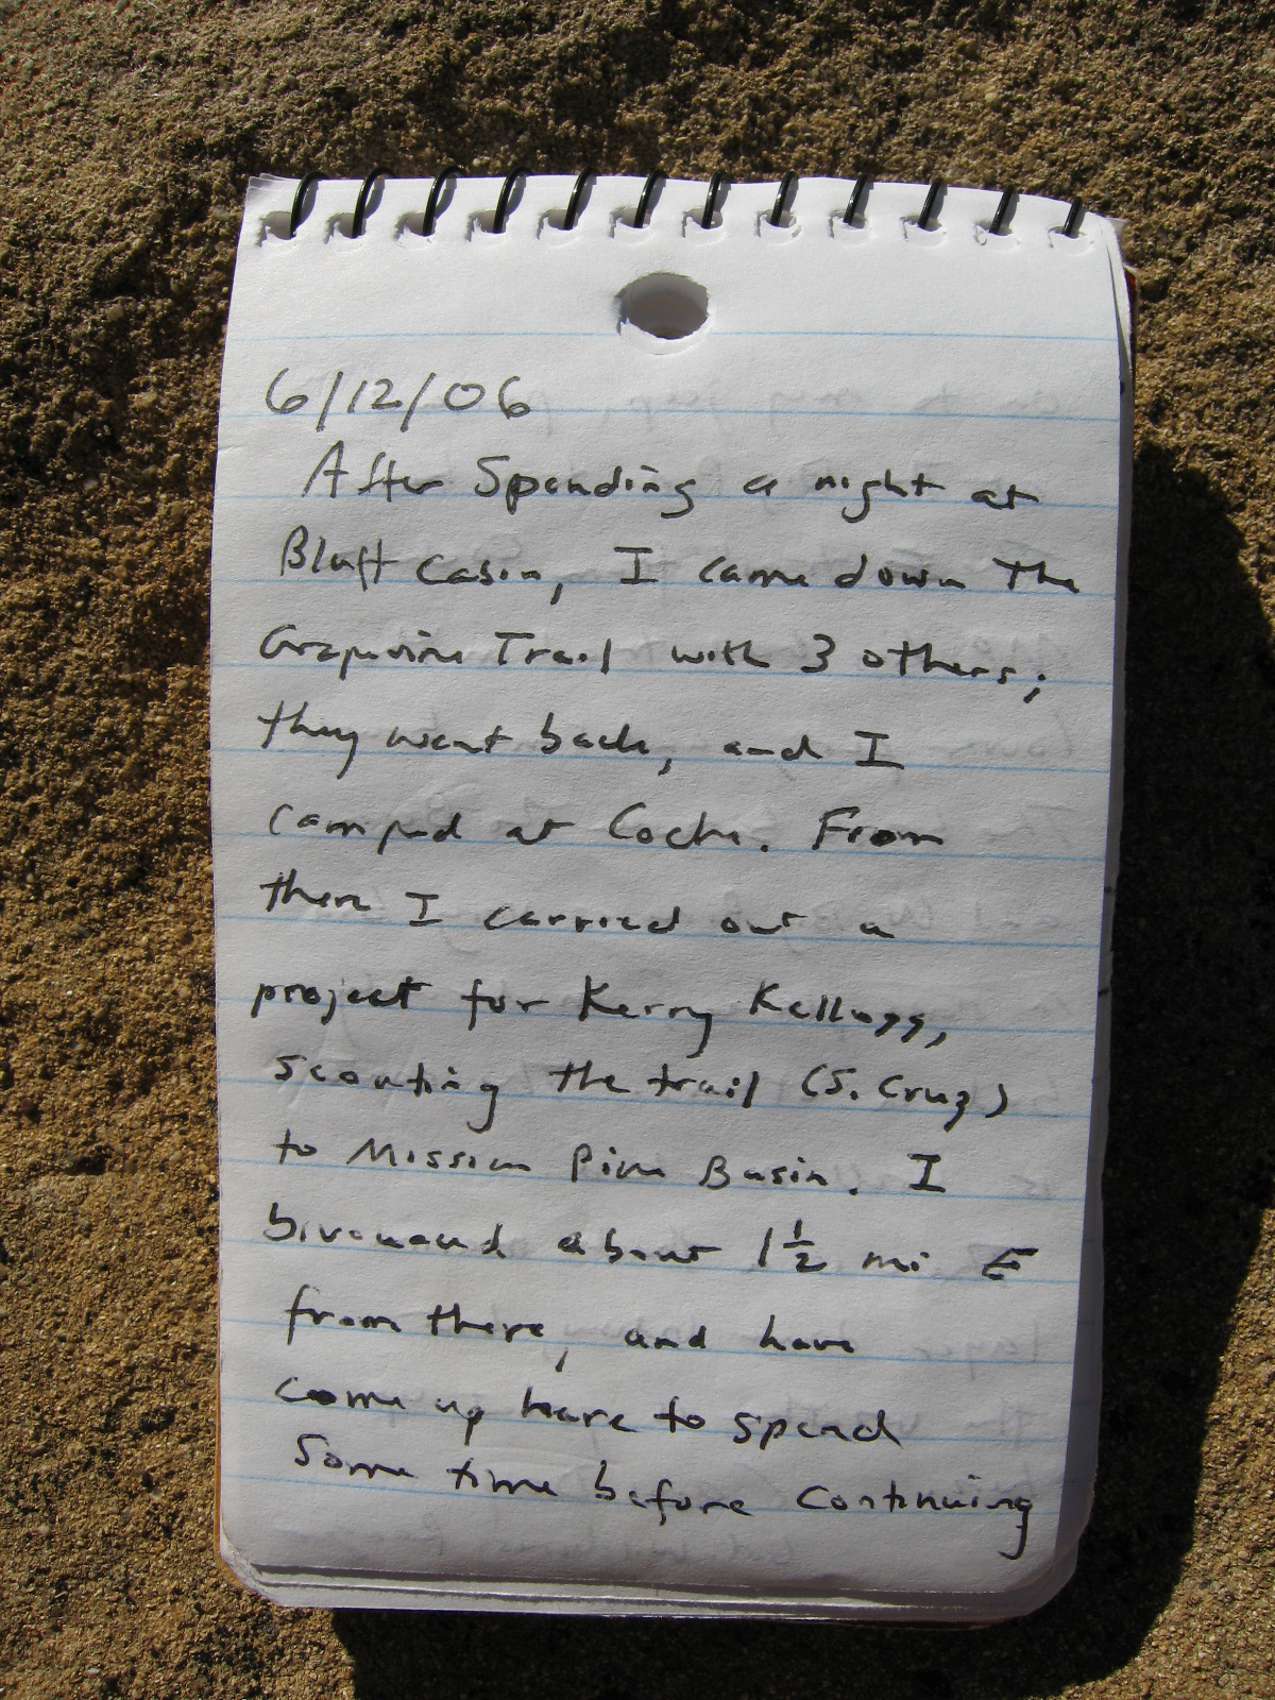 6/12/06
After Spending a night at
Bluff Cabin, I came down The
Grapevine Trail with 3 others;
they went back, and I
camped at Coche. From
there I carried out a
project for Kerry Kellogg,
scouting the trail (S. Cruz)
to Mission Pine Basin. I
bivouaced about 1 1/2 mi E
from there, and have
come up here to spend
Some time before continuing